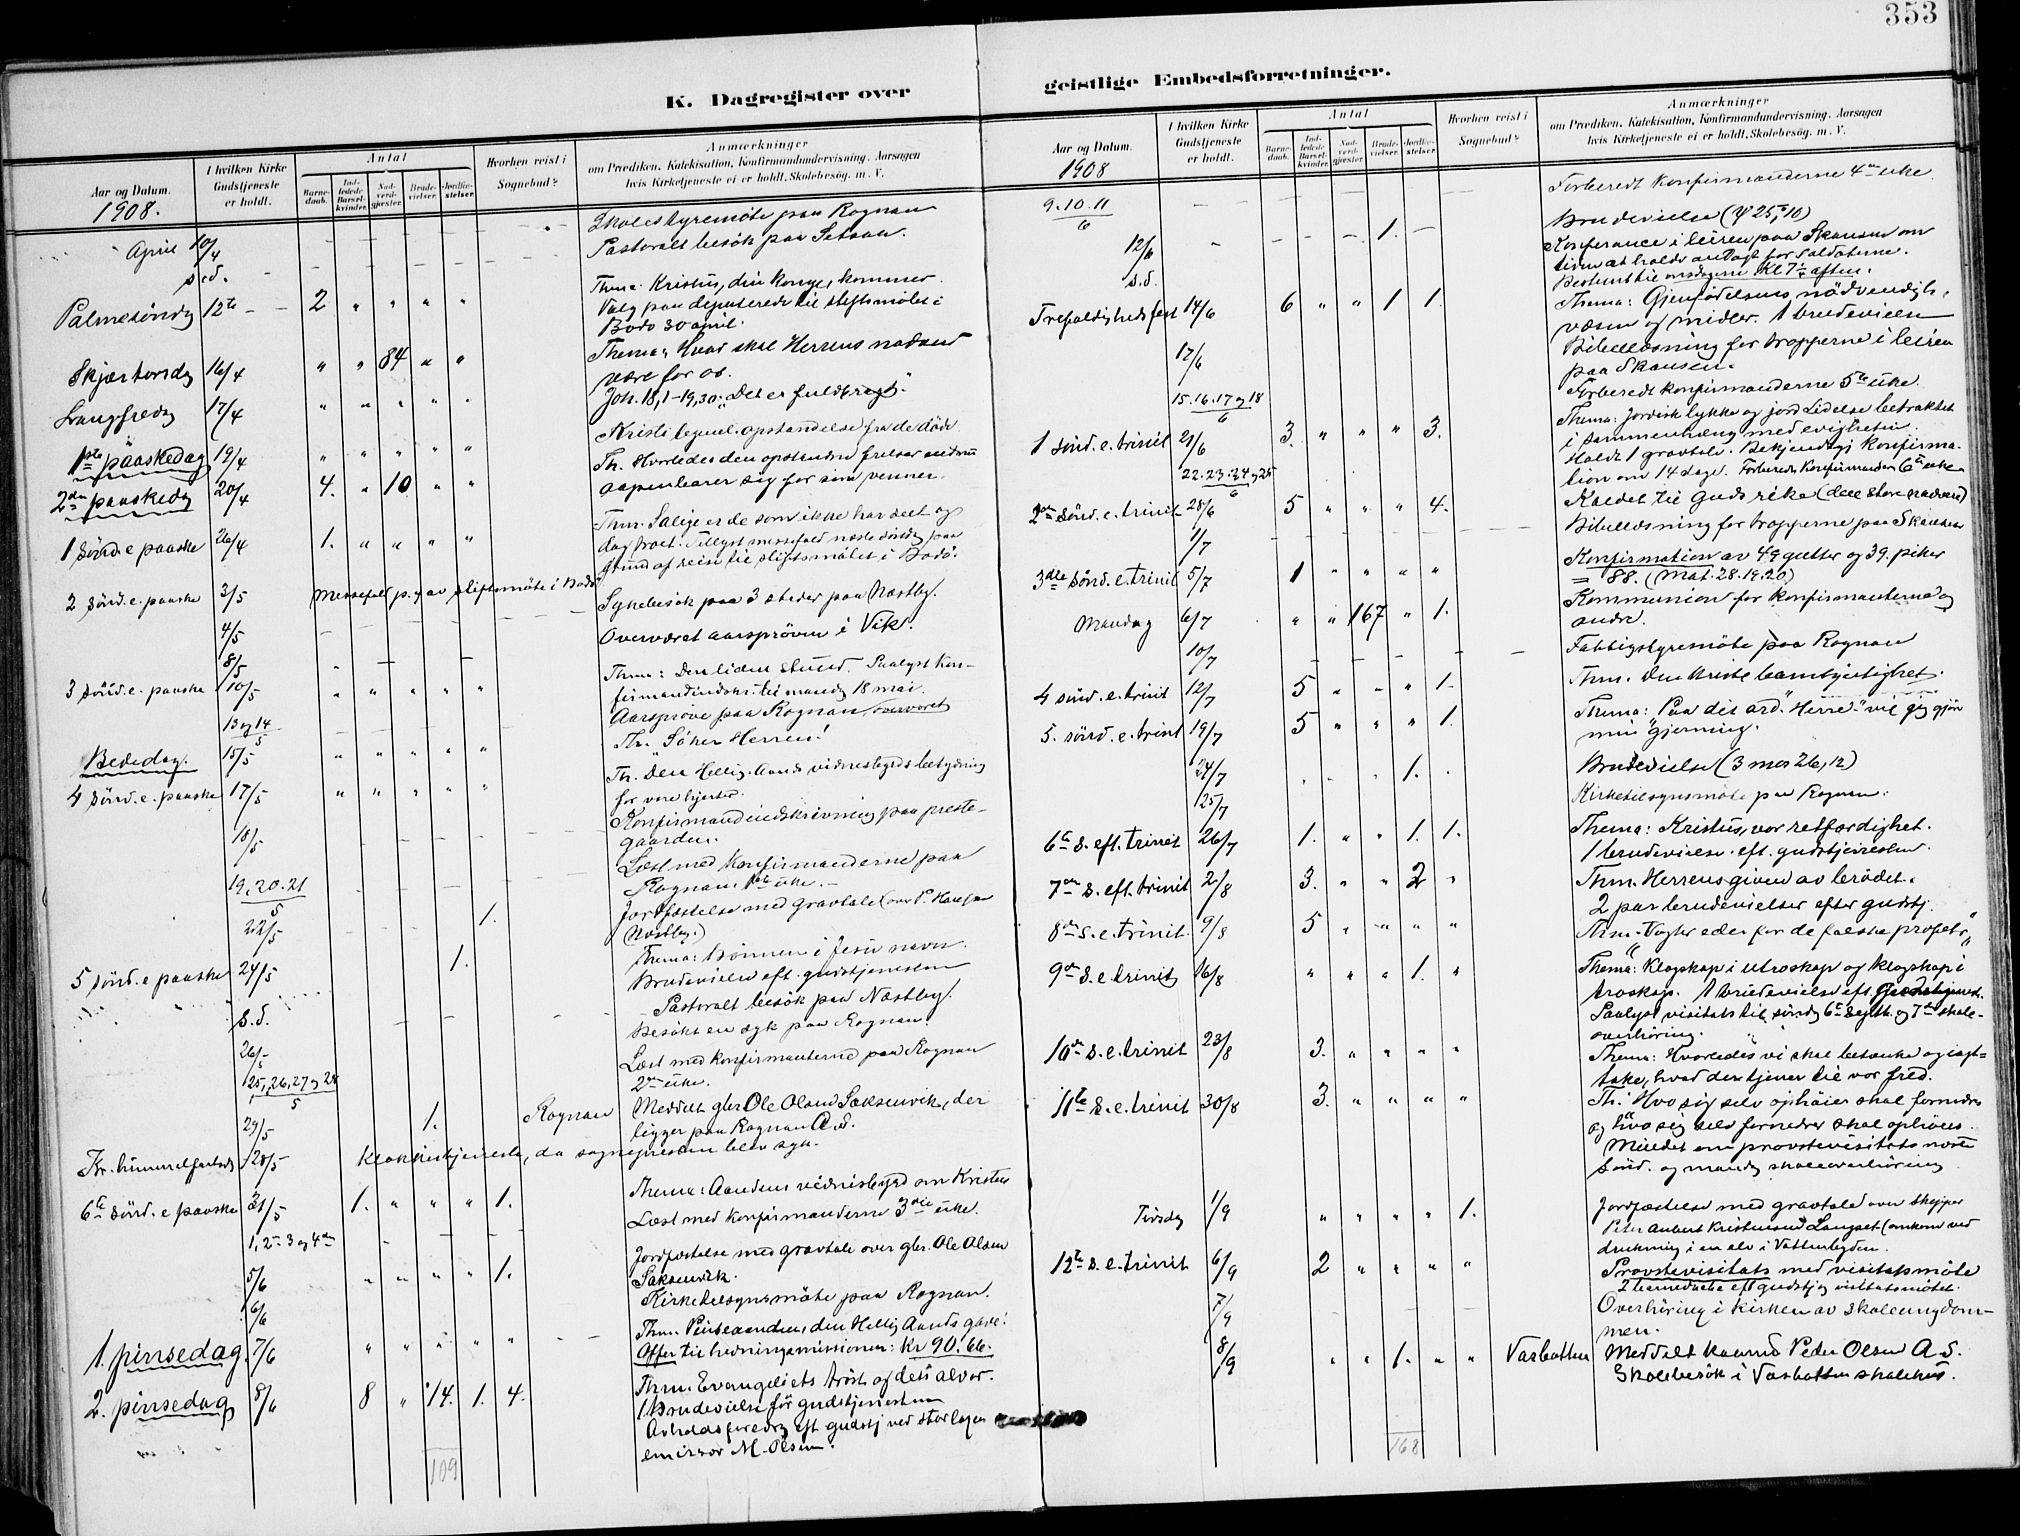 353
K. Dagregister over
Aar og Datum.
1908.
I hvilken Kirke Gudstjeneste er holdt.
Antal
Barnedaab.
Indledede Barselkvinder.
Nadverdgjæster.
Brudevielser.
Jordfæstelser.
Hvorhen reist i Sognebud?
Anmærkninger
om Prædiken, Katekisation, Konfirmandundervisning, Aarsagen
hvis Kirketjeneste ei er holdt, Skolebesøg. m. V.
April 10/4 Skolestyremöte paa Rognan
s.d. Pastoralt besök paa
Palmesöndg 12te 2 " " " " Thma: Kristus, din konge, kommer.
Valg paa deputerede til stiftsmötet i
Bodö 30 april.
Skjærtorsdg 16/4 " " 84 " " Thema: Hvad skal Herrens nadverd
være for os.
Langfredg 17/4 " " " " " Joh. 18,1-19,30: "Det er fuldbragt".
1ste paaskedag 19/4 " " " " " Kristi legeml. opstandelse fra de döde
2den paaskedg 20/4 4. " 10 " " Th. Hvorledes den opstandne frelser
aapenbarer sig for sine venner.
1 Sönd. e paaske 26/4 1. " " " " Thm. Salige er de som ikke har seet og
dog troet. Tillyst messefald næste söndg paa
grund af reise til stiftsmötet i Bodö.
2 Sönd. e. paaske 3/5 Messefald p. g av stiftsmöte i Bodö
4/5 Sykebesök paa 3 steder paa Næstby.
8/5 Overværet aarspröven i Vik.
3 Sönd. e. paaske 10/5 " " " " " Thm: Den liden stund. Paalyst kon-
firmandindskr. til mandg 18 mai.
13 og 14/5 Aarspröve paa Rognan overværet
Bededag. 15/5 " " " " " Th. "Söker Herren!"
4 Sönd. e. paaske 17/5 " " " " " Th. Den Hellig-Aands vidnesbyrds betydning
for vore hjerter.
18/5 Konfirmandindskrivning paa preste-
gaarden.
19.20.21/5 Læst med konfirmanderne paa
Rognan. 1ste uke.
22/5 1. Jordfæstelse med gravtale (over P. Hansen
Næstby.)
5 Sönd. e paaske 24/5 1. Thema: Bönnen i Jesu navn.
Brudevielse eft. gudstjenesten
s.d. Pastoralt besök paa Næstby.
26/5 Besökt en syk paa Rognan.
25, 26, 27 og 28/5 Læst med konfirmanterne paa Rognan
2den uke.
29/5 1. Rognan Meddelt gbr. Ole Olsen Saksenvik, der
ligger paa Rognan A.S.
Kr. himmelfartsdg 28/5 Klokkertjeneste, da sognepresten blev syk.
6te Sönd. e paaske 31/5 1. " " " 1. Thema: Aandens vidnesbyrd om Kristus
1, 2 3 og 4de Læst med konfirmanderne 3die uke.
5/6 " " " " 1. Jordfæstelse med gravtale over gbr. Ole Olsen
Saksenvik.
6/6 Kirketilsynsmöte paa Rognan.
1. pinsedag 7/6 " " " " " Thm. Pinseaanden, den Hellig Aands gave.
Offer til hedningemissionen: Kr 90.66.
2. pinsedag 8/6 8 " 14. 1. 4. Thm. Evangeliets tröst og dets alvor.
1 Brudevielse för gudstjenesten
Avholdsforedrg eft gudstj ved storlogen
emissær M. Olsen.
109
geistlige Embedsforretninger.
Aar og Datum.
1908
I hvilken Kirke Gudstjeneste er holdt.
Antal
Barnedaab.
Indledede Barselkvinder.
Nadverdgjæster.
Brudevielser.
Jordfæstelser.
Hvorhen reist i Sognebud?
Anmærkninger
om Prædiken, Katekisation, Konfirmandundervisning, Aarsagen
hvis Kirketjeneste ei er holdt, Skolebesøg. m. V.
9.10.11/6 Forberedt konfirmanderne 4de uke.
12/6 1. Brudevielse (ψ 25, 10)
s.d. Konferance i leiren paa Skansen om
tiden at holde andagt for soldaterne.
Bestemt til onsdagene Kl 7½ aften.
Trefoldighedsfest 14/6 6 " " 1 1. Thema: Gjenfödelsens nödvendigh.,
væsen og midler. 1 brudevielse
17/6 Bibellæsning for tropperne i leiren
paa Skansen.
15.16.17 og 18/6 Forberedt konfirmanderne 5te uke.
1 Sönd. e. trinit 21/6 3. " " " 3. Thema: Jordisk lykke og jord. Lidelse betraktet
i sammenhæng med evigheten.
Holdt 1 gravtale. Bekjendtgj konfirma-
22.23.24 og 25/6 tion om 14 dage. Forberedt konfirmanderne 6te uke
2den Sönd. e. trinit 28/6 5 " " " 4. Kaldet til Guds rike (den store nadvere)
1/7 Bibellæsning for tropperne paa Skansen
3die Sönd. e. trinit 5/7 1 " " " " Konfirmation av 49 gutter og 39. piker
= 88. (Mat. 28.19.20)
Mandag 6/7 " " 167 " 1. Kommunion for konfirmanterne og
andre.
10/7 Fattigstyremöte paa Rognan
4 sönd. e. trinit 12/7 5 " " " 1. Thm. Den kristl barmhjertighet.
5. sönd. e. trinit 19/7 5 " " " 1. Thema: "Paa dit ord "Herre" vil jeg gjöre
min gjerning".
24/7 1. Brudevielse (3 mos 26, 12)
25/7 Kirketilsynsmöte paa Rognan.
6te S. eft. trinit 26/7 1. " " 1. 1. Thema: Kristus, vor retfærdighet.
1 brudevielse. eft. gudstjenesten.
7de S. eft. trinit 2/8 3. " " 2 " Thm. Herrens given av brödet.
2 par brudevielser efter gudstj.
8de S. e. trinit. 9/8 5 " " " " Thm. "Vogter eder for de falske profeter"
9de S. e. trinit 16/8 " " " 1. " Thema: Klogskap i utroskap og klogskap i
troskap. 1 brudevielse eft. Gudstjenest.
Paalyst visitats til söndg 6te Septb. og 7de skole-
overhöring.
10de S. e. trinit 23/8 3. " " " " Thema: Hvorledes vi skal betænke og iagt-
take, hvad der tjener til vor fred.
11te S. e. trinit 30/8 3. " " " " Th. Hvo sig selv ophöier skal fornedres
og hvo sig selv fornedrer skal ophöies.
Mindet om provstevisitats næste
Sönd. og mandg skoleoverhöring
Tirsdg 1/9 " " " " 1. Jordfæstelse med gravtale over skipper
Peter Kristensen Langset (omkom ved
drukning i en elv i
12te S. e. trinit. 6/9 2 " " " " Provstevisitats med visitatsmöte
eft gudstj visitatsmötet.
7/9 Overhöring i kirken av skoleungdom-
men.
8/9 " " 1. " " Vasbotten Meddelt Peder Olsen A.S.
Skolebesök i Vasbotten skolehus.
168